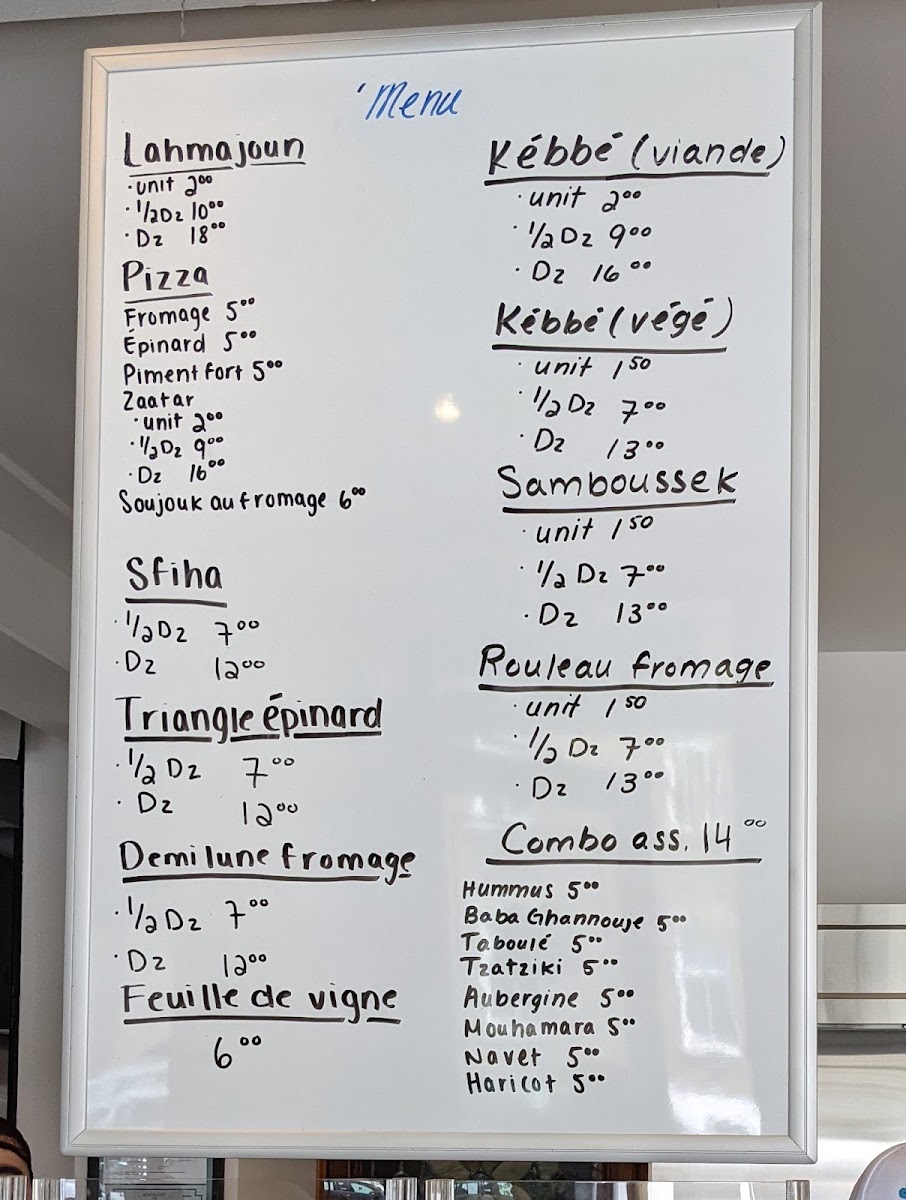 Menu
Lahmajoun
·unit 2⁰⁰
·1/2Dz 10⁰⁰
·Dz 18⁰⁰
Pizza
Fromage 5⁰⁰
Épinard 5⁰⁰
Piment fort 5⁰⁰
Zaatar
·unit 2⁰⁰
·1/2Dz 9⁰⁰
·Dz 16⁰⁰
Soujouk au fromage 6⁰⁰
Sfiha
·1/2Dz 7⁰⁰
·Dz 12⁰⁰
Triangle épinard
·1/2 Dz 7⁰⁰
·Dz 12⁰⁰
Demi lune fromage
·1/2 Dz 7⁰⁰
·Dz 12⁰⁰
Feuille de vigne
6⁰⁰
Kébbé (viande)
·unit 2⁰⁰
·1/2 Dz 9⁰⁰
·Dz 16⁰⁰
Kébbé (végé)
·unit 1⁵⁰
·1/2 Dz 7⁰⁰
·Dz 13⁰⁰
Samboussek
·unit 1⁵⁰
·1/2 Dz 7⁰⁰
·Dz 13⁰⁰
Rouleau fromage
·unit 1⁵⁰
·1/2 Dz 7⁰⁰
·Dz 13⁰⁰
Combo ass. 14⁰⁰
Hummus 5⁰⁰
Baba Ghannouje 5⁰⁰
Taboulé 5⁰⁰
Tzatziki 5⁰⁰
Aubergine 5⁰⁰
Mouhamara 5⁰⁰
Navet 5⁰⁰
Haricot 5⁰⁰